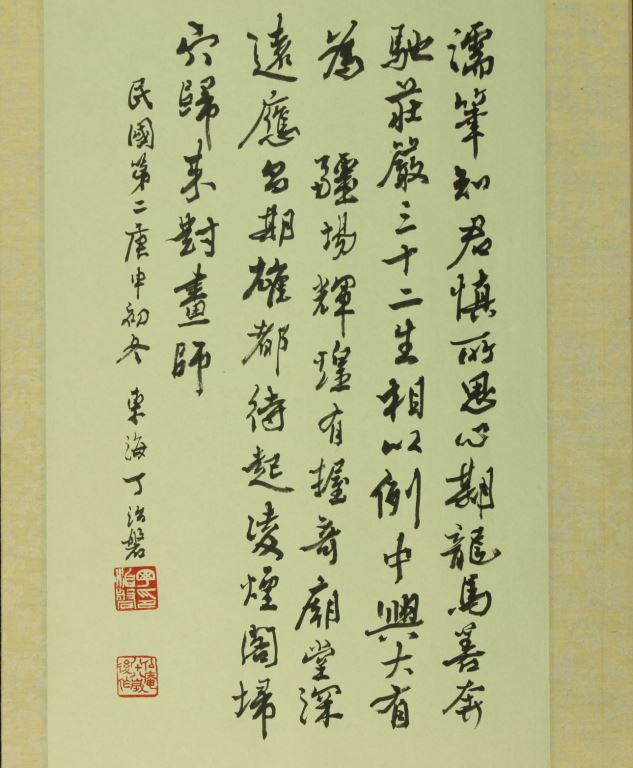 濡筆知君慎所思心期龍馬善奔
馳莊嚴三十二生相以例中興大有
為 疆場輝煌有握奇廟堂深
遠應昌期雄都待起凌煙閣埽
穴歸來對畫師
民國第二庚申初冬 東海丁治磐
丁治磐印